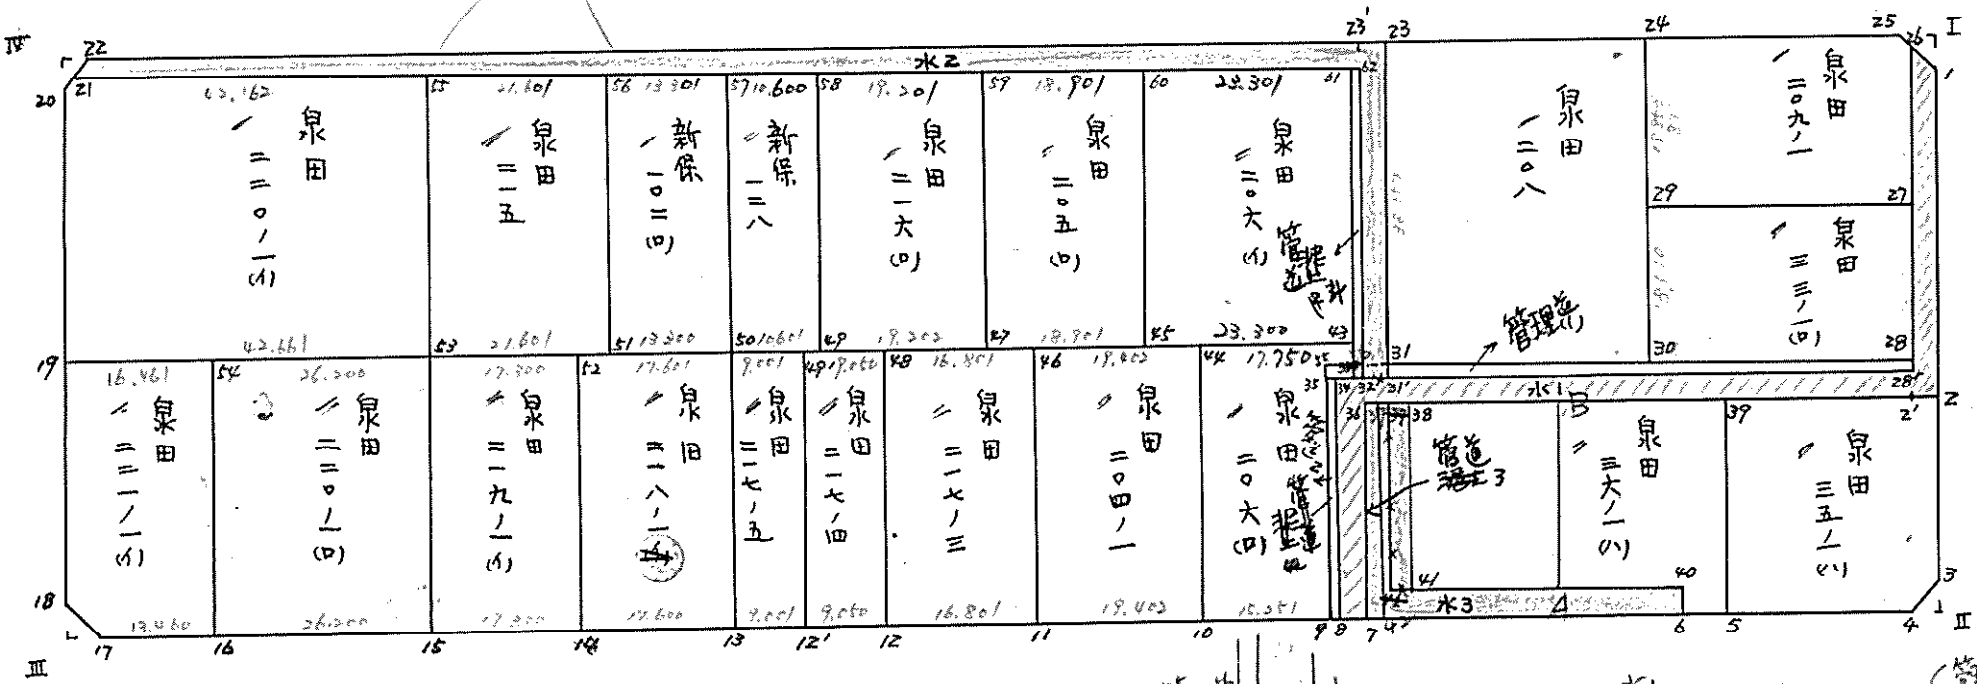 IV
22
水2
23'
23
24
25
26
I
20
21
42.162
55
21.601
56
13.301
57
10.600
58
19.201
59
18.901
60
23.301
61
62
1
泉田
二二〇ノ一
(イ)
泉田
二一五
新保
一〇二
(ロ)
新保
一二八
泉田
二一六
(ロ)
泉田
二〇五
(ロ)
泉田
二〇六
(イ)
泉田
二〇八
泉田
二〇九ノ一
29
27
泉田
三三ノ一
(ロ)
管理道(1)
42.661
53
21.601
51
13.300
50
10.601
49
19.202
47
18.901
45
23.300
43
31
30
28
19
16.461
54
26.200
17.300
52
17.601
9.001
49'
9.050
48
16.801
46
19.402
44
17.750
35
34
32'
31'
水1
28'
2
2'
36
38
B
39
泉田
二二一ノ一
(イ)
泉田
二二〇ノ一
(ロ)
泉田
二一九ノ一
(イ)
泉田
二一八ノ一
泉田
二一七ノ五
泉田
二一七ノ四
泉田
二一七ノ三
泉田
二〇四ノ一
泉田
二〇六
(ロ)
管道
3
泉田
三六ノ一
(ハ)
泉田
三五ノ一
(ハ)
18
26.200
17.300
17.600
9.001
9.050
16.801
19.402
15.251
41
水3
40
3
III
17
16
15
14
13
12'
12
11
10
9
8
7
6
5
4
II